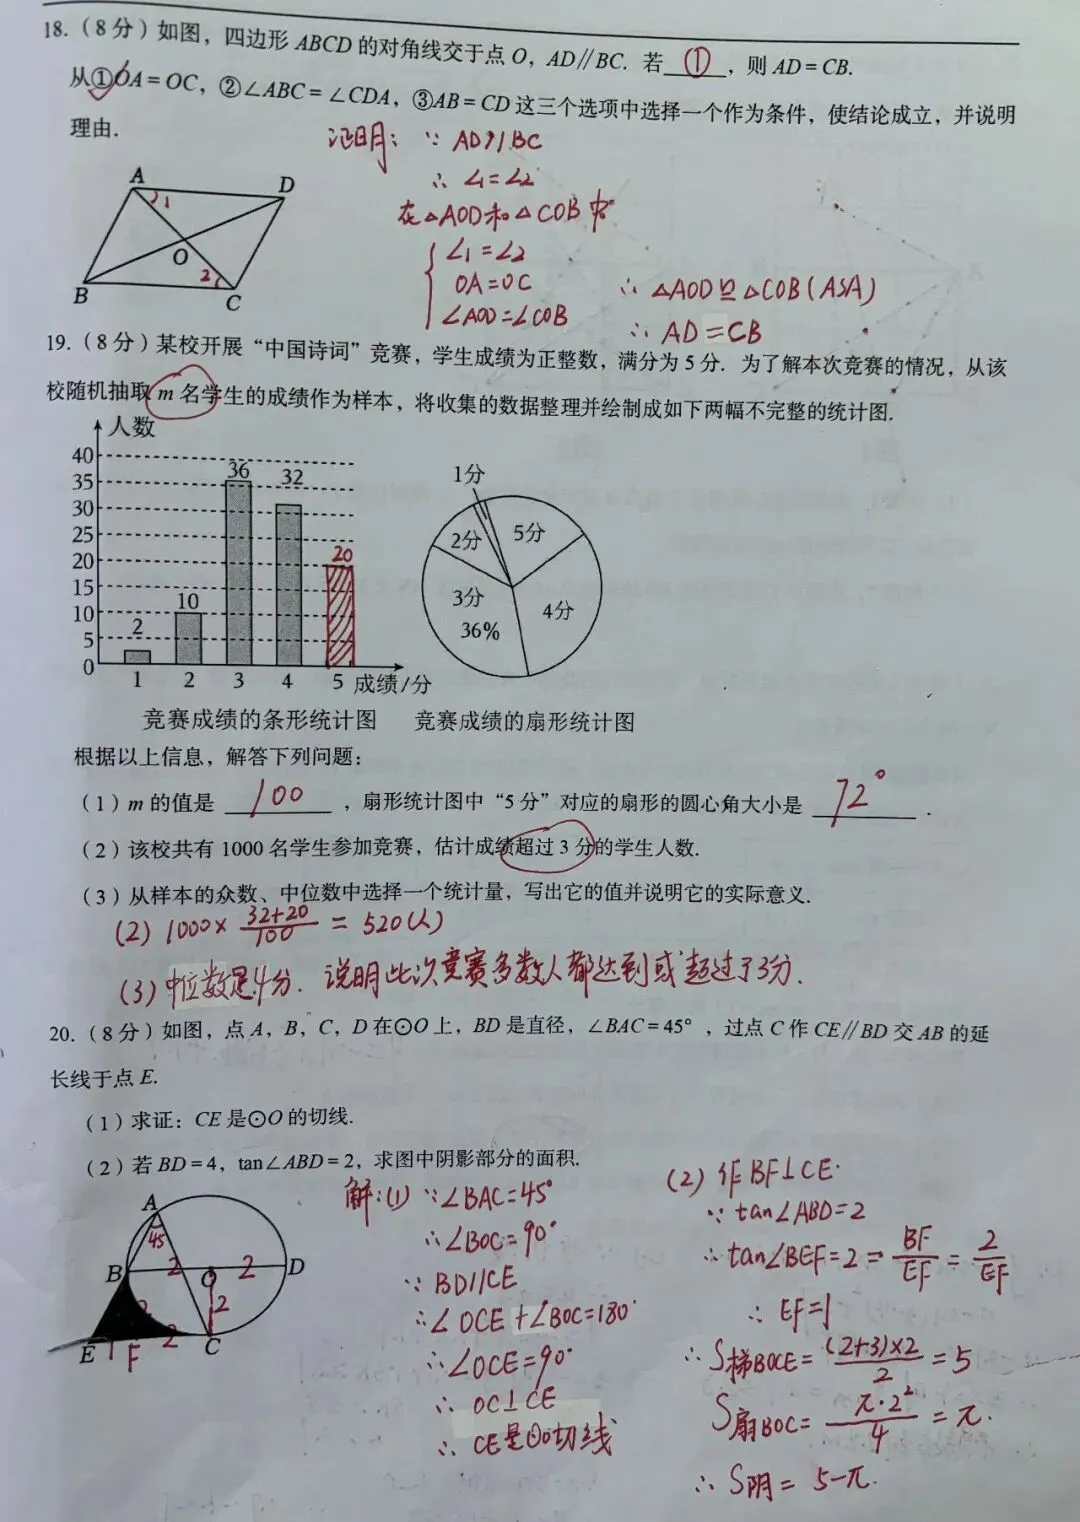 18.（8分）如图，四边形ABCD的对角线交于点O，AD∥BC. 若 ① ，则AD=CB.
从①OA=OC，②∠ABC=∠CDA，③AB=CD这三个选项中选择一个作为条件，使结论成立，并说明
理由.
证明：∵ AD//BC
∴ ∠1=∠2
在△AOD和△COB中
∠1=∠2
OA=OC
∠AOD=∠COB
∴ △AOD≌△COB(ASA)
∴ AD=CB
A
D
1
O
2
B
C
19.（8分）某校开展“中国诗词”竞赛，学生成绩为正整数，满分为5分. 为了解本次竞赛的情况，从该
校随机抽取m名学生的成绩作为样本，将收集的数据整理并绘制成如下两幅不完整的统计图.
人数
40
35
30
25
20
15
10
5
0
2
10
36
32
20
1 2 3 4 5 成绩/分
竞赛成绩的条形统计图
1分
2分
5分
3分
36%
4分
竞赛成绩的扇形统计图
根据以上信息，解答下列问题：
（1）m的值是 100 ，扇形统计图中“5分”对应的扇形的圆心角大小是 72° .
（2）该校共有1000名学生参加竞赛，估计成绩超过3分的学生人数.
（3）从样本的众数、中位数中选择一个统计量，写出它的值并说明它的实际意义.
(2) 1000×(32+20)/100 = 520(人)
(3) 中位数是4分. 说明此次竞赛多数人都达到或超过了3分.
20.（8分）如图，点A，B，C，D在⊙O上，BD是直径，∠BAC=45°，过点C作CE∥BD交AB的延
长线于点E.
（1）求证：CE是⊙O的切线.
（2）若BD=4，tan∠ABD=2，求图中阴影部分的面积.
A
45
B
2
O
2
D
2
2
2
E
1
F
C
解：(1) ∵∠BAC=45°
∴∠BOC=90°
∵ BD//CE
∴∠OCE+∠BOC=180°
∴∠OCE=90°
∴ OC⊥CE
∴ CE是⊙O切线
(2) 作BF⊥CE.
∵ tan∠ABD=2
∴tan∠BEF=2=BF/EF=2/EF
∴ EF=1
∴ S梯BOCE=(2+3)×2/2=5
S扇BOC=π·2²/4=π.
∴ S阴=5-π.